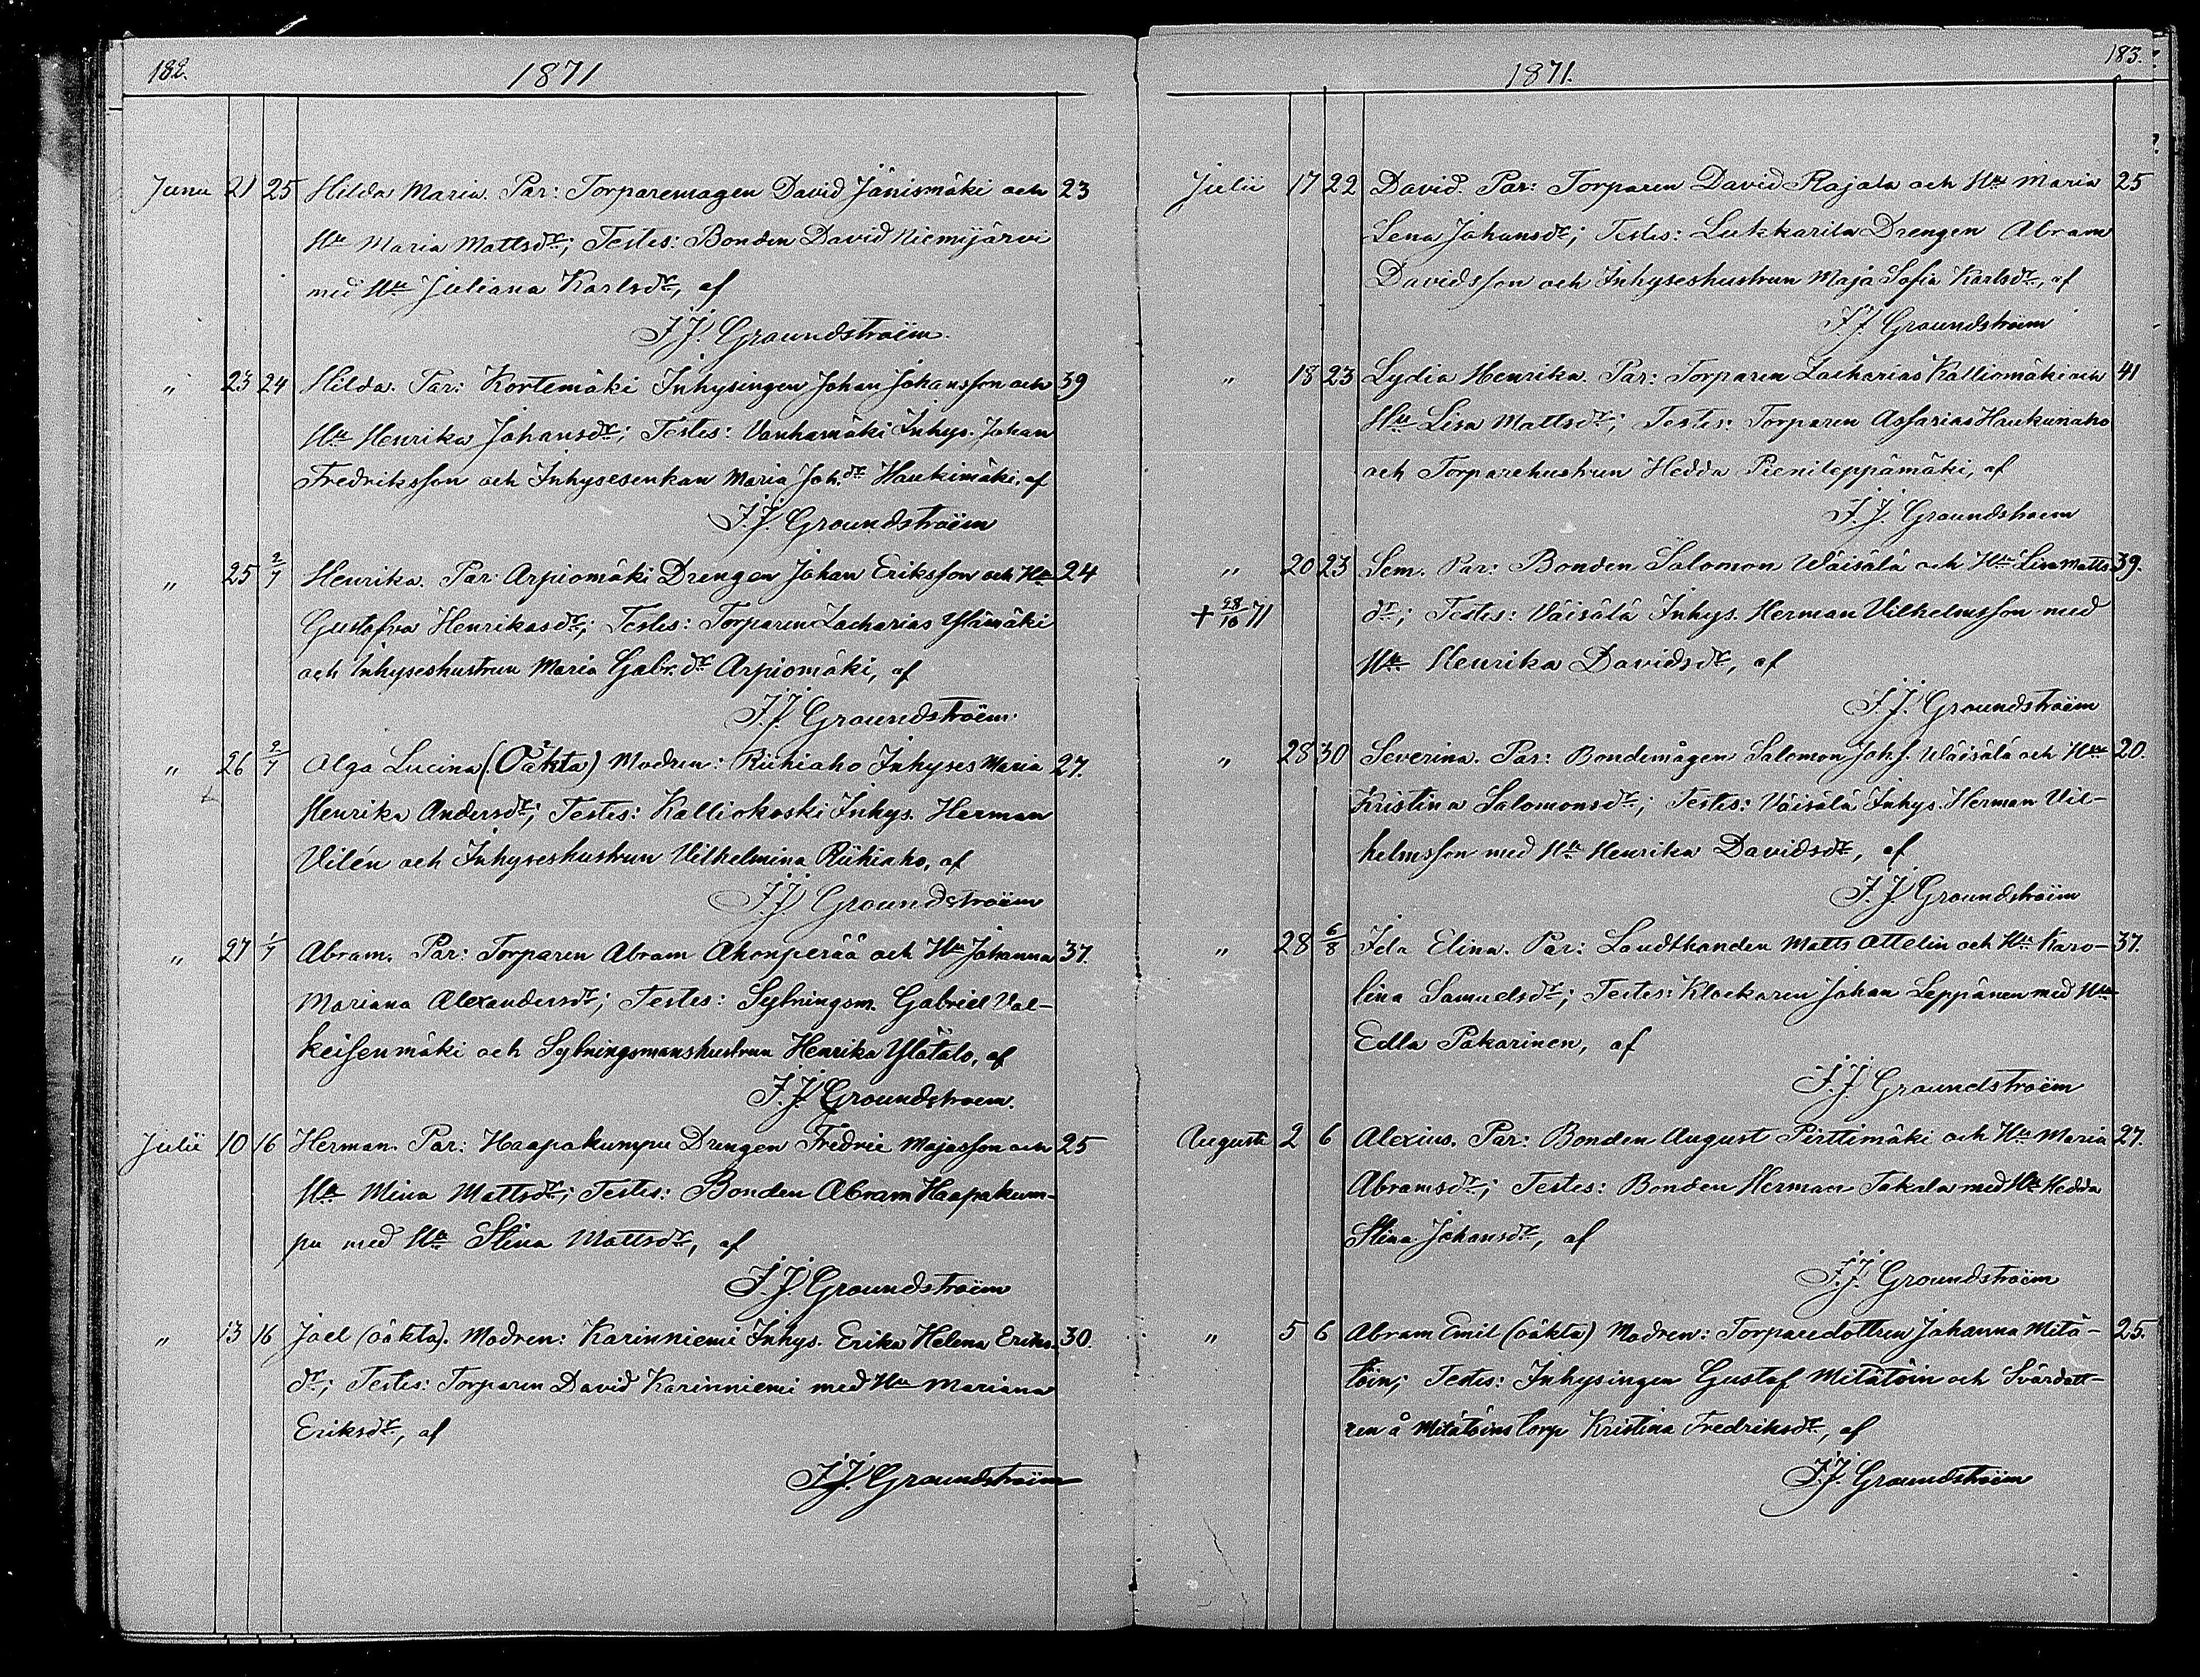 182.
1871
Junii 21 25 Hilda Maria. Par: Torparemågen David Jänismäki och 23
Hu Maria Mattsdr; Testes: Bonden David Niemijärvi
med Hu Juliana Karlsdr, af
J.J. Groundstroëm.
„ 23 24 Hilda. Par: Kortemäki Inhysingen Johan Johansson och 39
Hu Henrika Johansdr; Testes: Vanhamäki Inhys. Johan
Fredriksson och Inhysesenkan Maria Joh.dr Haukimäki, af
J.J. Groundstroëm
„ 25 2/7 Henrika. Par: Arpiomäki Drengen Johan Eriksson och Hu 24
Gustafva Henriksdr; Testes: Torparen Zacharias Ylämäki
och Inhyseshustrun Maria Gabr.dr Arpiomäki, af
J.J. Groundstroëm.
„ 26 2/7 Alga Lucina (Oäkta) Modren: Riihiaho Inhyses Maria 27.
Henrika Andersdr; Testes: Kalliokoski Inhys. Herman
Vilén och Inhyseshustrun Vilhelmina Riihiaho, af
J.J. Groundstroëm
„ 27 1/7 Abram. Par: Torparen Abram Ahonperää och Hu Johanna 37.
Mariana Alexandersdr; Testes: Sytningsm. Gabriel Val-
keisenmäki och Sytningsmanshustrun Henrika Ylätalo, af
J.J. Groundstroem.
Julii 10 16 Herman. Par: Haapakumpu Drengen Fredric Majasson och 25
Hu Mina Mattsdr; Testes: Bonden Abram Haapakum-
pu med Hu Stina Mattsdr, af
J.J. Groundstroëm
„ 13 16 Joel (oäkta). Modren: Karinniemi Inhys. Erika Helena Eriks- 30.
dr; Testes: Torparen David Karinniemi med Hu Mariana
Eriksdr, af
J.J. Groundstroëm
183.
1871.
Julii 17 22 David. Par: Torparen David Rajala och Hu Maria 25
Lena Johansdr; Testes: Lukkarila Drengen Abram
Davidsson och Inhyseshustrun Maja Sofia Karlsdr, af
J.J. Groundstroëm
„ 18 23 Lydia Henrika. Par: Torparen Zacharias Kalliomäki och 41
Hu Lisa Mattsdr; Testes: Torparen Assarias Haukunaho
och Torparehustrun Hedda Pienileppämäki, af
J.J. Groundstroem
„ 20 23 Sem. Par: Bonden Salomon Wäisälä och Hu Lisa Matts- 39.
+ 28/10 71 dr; Testes: Väisälä Inhys. Herman Vilhelmsson med
Hu Henrika Davidsdr, af
J.J. Groundstroëm
„ 28 30 Severina. Par: Bondemågen Salomon Joh.s. Wäisälä och Hu 20.
Kristina Salomonsdr; Testes: Väisälä Inhys. Herman Vil-
helmsson med Hu Henrika Davidsdr, af
J.J. Groundstroëm
„ 28 6/8 Ida Elina. Par: Landthanden Matts Attelin och Hu Karo- 37.
lina Samuelsdr; Testes: Klockaren Johan Leppänen med Hu
Edla Pakarinen, af
J.J. Groundstroëm
Augusti 2 6 Alexius. Par: Bonden August Pirttimäki och Hu Maria 27.
Abramsdr; Testes: Bonden Herman Takala med Hu Hedda
Stina Johansdr, af
J.J. Groundstroëm
„ 5 6 Abram Emil (oäkta) Modren: Torparedottren Johanna Mitä- 25.
töin; Testes: Inhysingen Gustaf Mitätöin och Svärdott-
ren å Mitätöins torp Kristina Fredriksdr, af
J.J. Groundstroëm